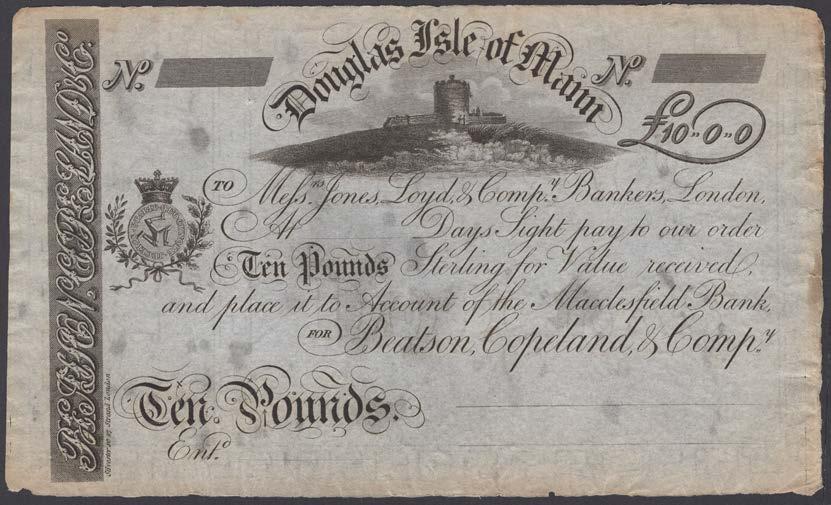 Douglas Isle of Mann
No. No.
£10"0"0
TO Messrs. Jones, Loyd, & Compy. Bankers, London,
At Days Sight pay to our order
Ten Pounds Sterling for Value received,
and place it to Account of the Macclesfield Bank,
FOR Beatson, Copeland, & Compy.
Ten Pounds.
Entd.
Silvester sc 27 Strand London